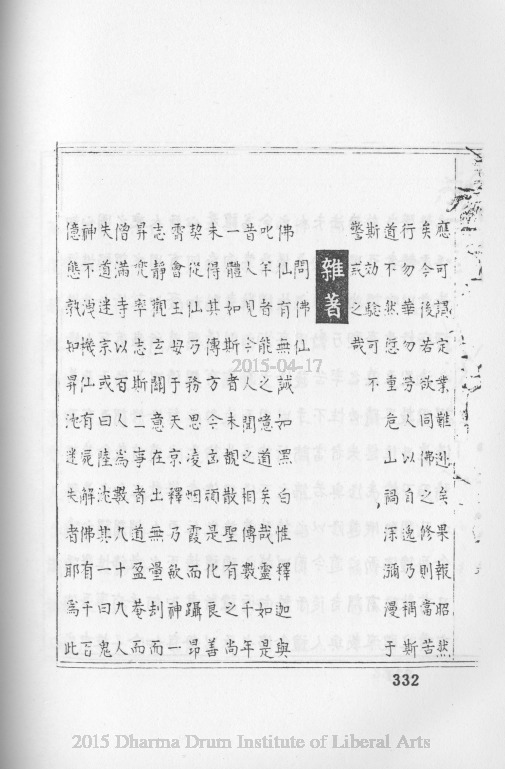 應可謂定業難逃矣果報昭然
矣今後若欲同佛之修則當苦
行勿華勿勞人以自逸乃稱斯
道不然怎重危山禍深瀰漫于
斯効驗可不
警戒之哉
雜著
問佛仙
佛仙有無誠如黑白惟釋迦與
叱羊者能之憶道矣哉靈如是
昔人見今人聞之相傳數千年
一體如斯者未覩散聖有之尚
未得其傳方今玄頑是化良善
契從仙乃務思凌烟霞而躡昂
霽會王母于天京釋乃欲神一
志靜觀玄關意在土無量刦而
昇兜率志斯二事者道盈菴而
僧滿寺以百人為數九十九人
失道迷宗或曰陸沈其一曰鬼
神不洩機仙有屍解佛有千百
億態孰知昇沈迷失者耶為此
332
2015-04-17
2015 Dharma Drum Institute of Liberal Arts